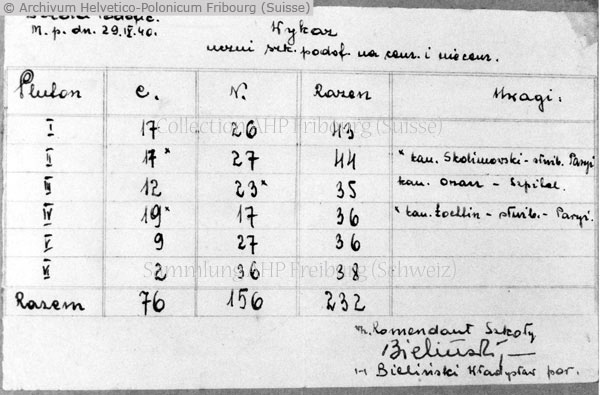 © Archivum Helvetico-Polonicum Fribourg (Suisse)
M. p. dn. 29.IV.40.
Wykaz
uczni szk. podof. na cenz. i niecenz.
Pluton C. N. Razem Uwagi:
I 17 26 43
Collection AHP Fribourg (Suisse)
II 17* 27 44 * kan. Skolimowski - służb. Paryż
III 12 23* 35 kan. - Szpital.
IV 19* 17 36 * kan. - służb. - Paryż.
V 9 27 36
VI 2 36 38
Sammlung AHP Freiburg (Schweiz)
Razem 76 156 232
Komendant Szkoły
Bieliński
/-/ Bieliński Władysław por.